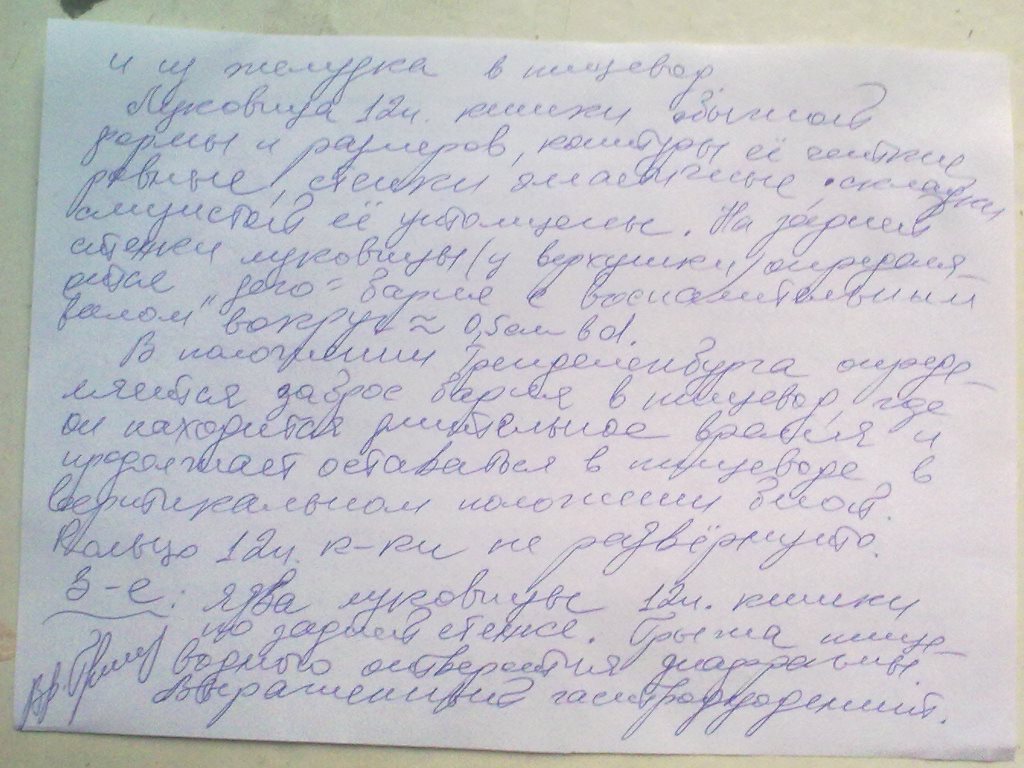 и из желудка в пищевод
Луковица 12п. кишки обычной
формы и размеров, контуры её чёткие
ровные, стенки эластичные складки
слизистой её утолщены. На задней
стенки луковицы (у верхушки) определя-
ется "депо" бария с воспалительным
валом вокруг ≈ 0,5см в d.
В положении Тренделенбурга опреде-
ляется заброс бария в пищевод, где
он находится длительное время и
продолжает оставаться в пищеводе в
вертикальном положении больн.
Кольцо 12п. к-ки не развёрнуто.
З-е: язва луковицы 12п. кишки
по задней стенке. Грыжа пище-
водного отверстия диафрагмы.
Выраженный гастродуоденит.
Вр.